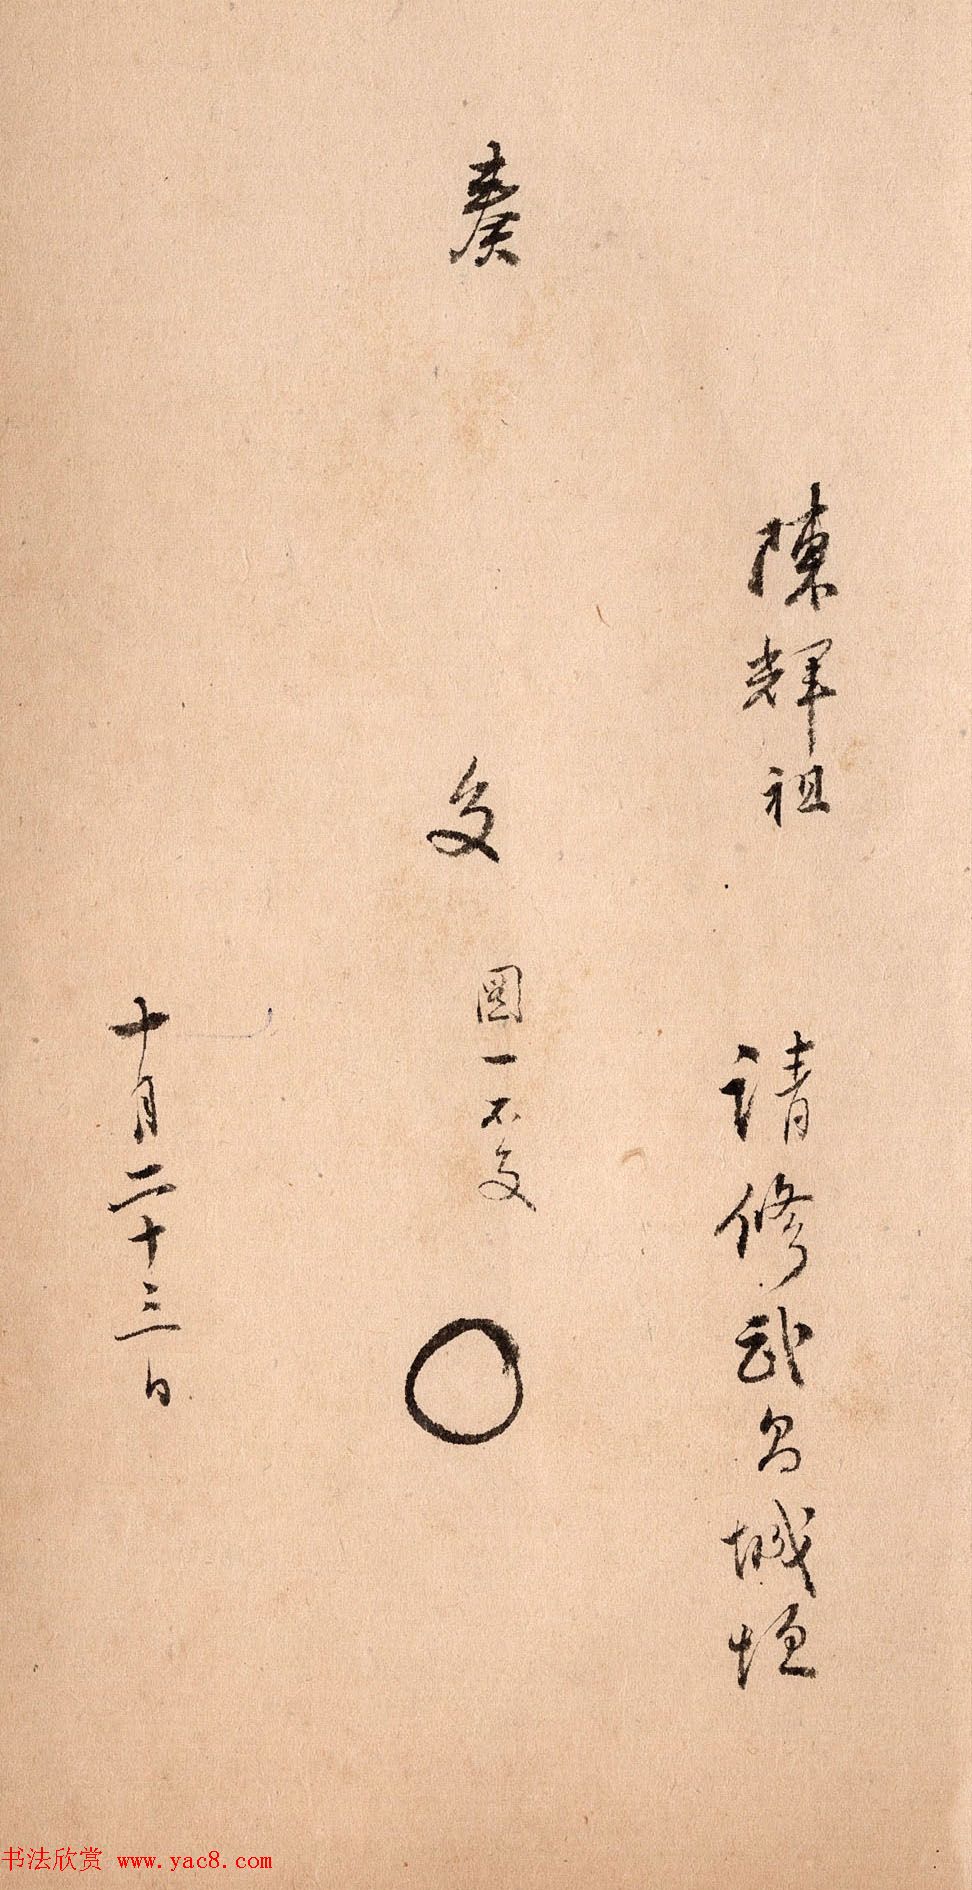 陳輝祖
請修武昌城垣
奏
交
圖一不交
十月二十三日
书法欣赏 www.yac8.com